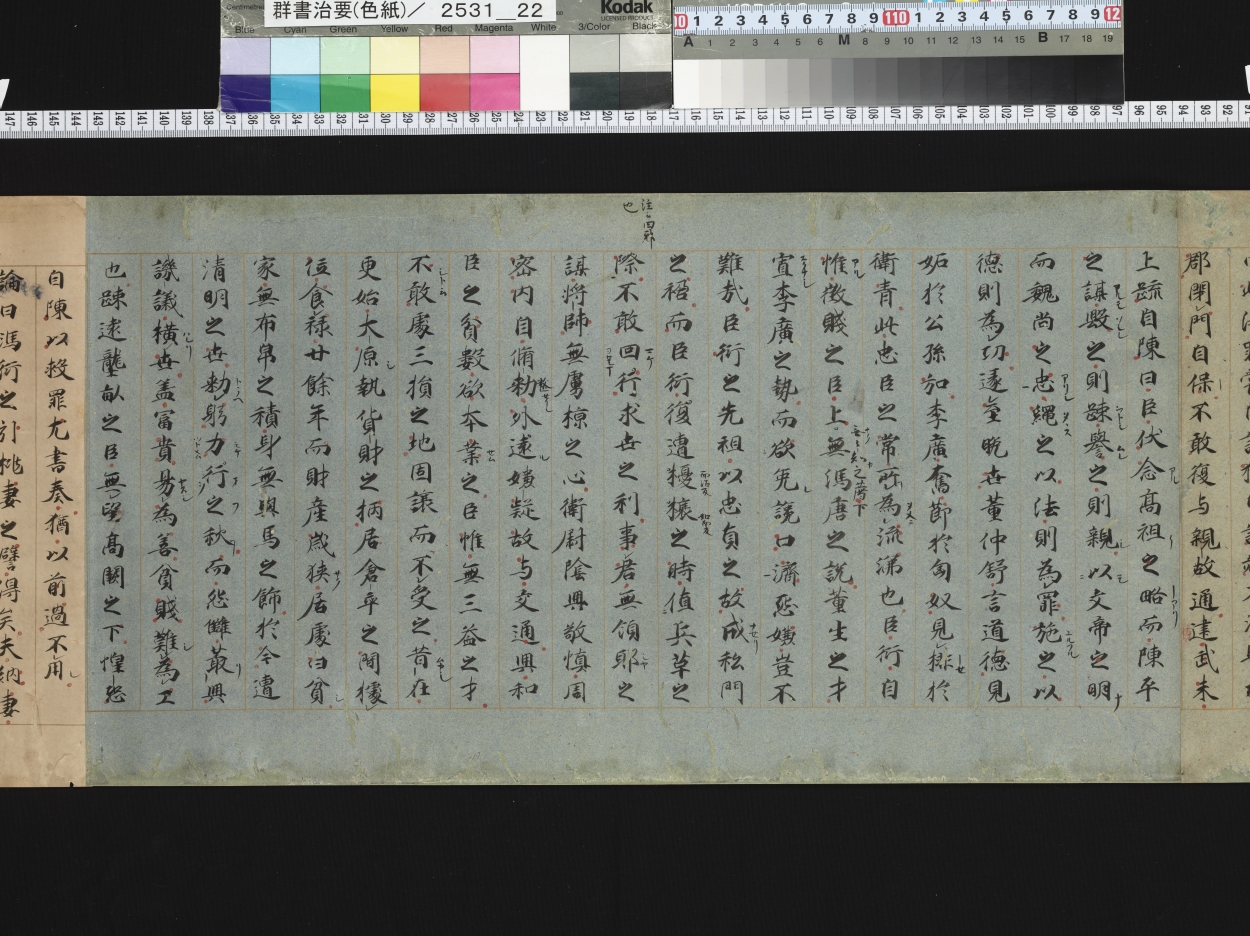 群書治要(色紙)／ 2531__22
Kodak
LICENSED PRODUCT
Blue Cyan Green Yellow Red Magenta White 3/Color Black
郡閇門自保不敢復与親故通建武末
上疏自陳曰臣伏念髙祖之略而陳平
之謀毀之則踈譽之則親以文帝之明
而魏尚之忠繩之以法則為罪施之以
德則為功逮至晩世董仲舒言道德見
妬於公孫弘李廣奮節於匈奴見排於
衛青此忠臣之常所為流涕也臣衍自
惟微賤之臣上無馮唐之說董生之才
寡李廣之勢而欲免讒口濟怨嫌豈不
難哉臣衍之先祖以忠貞之故成私門
之禍而臣衍復遭擾攘之時值兵革之
際不敢回行求世之利事君無傾邪之
謀將帥無虜掠之心衛尉陰興敬慎周
密内自脩勑外遠嫌疑故与交通興知
臣之貧數欲本業之臣惟無三益之才
不敢處三損之地固讓而不受之昔在
更始大原執貨財之柄居倉卒之間據
位食祿廿餘年而財産歳狹居處日貧
家無布帛之積身無輿馬之飾於今遭
清明之世勑躬力行之秋而怨雠叢興
譏議横世盖冨貴易為善貧賤難為工
也踈遠壟畝之臣無望髙闕之下惶恐
自陳以救罪尤書奏猶以前過不用
論曰馮衍之引挑妻之譬得矣夫納妻